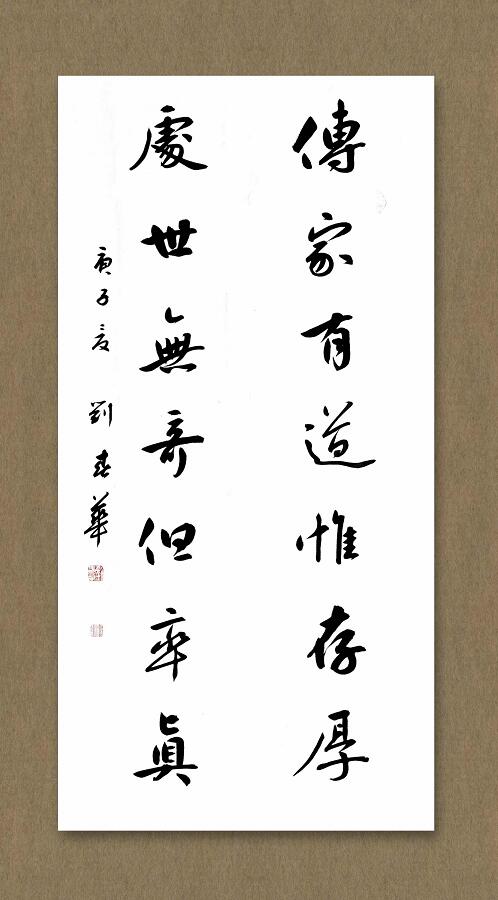 傳家有道惟存厚
處世無竒但率眞
庚子夏 劉春華